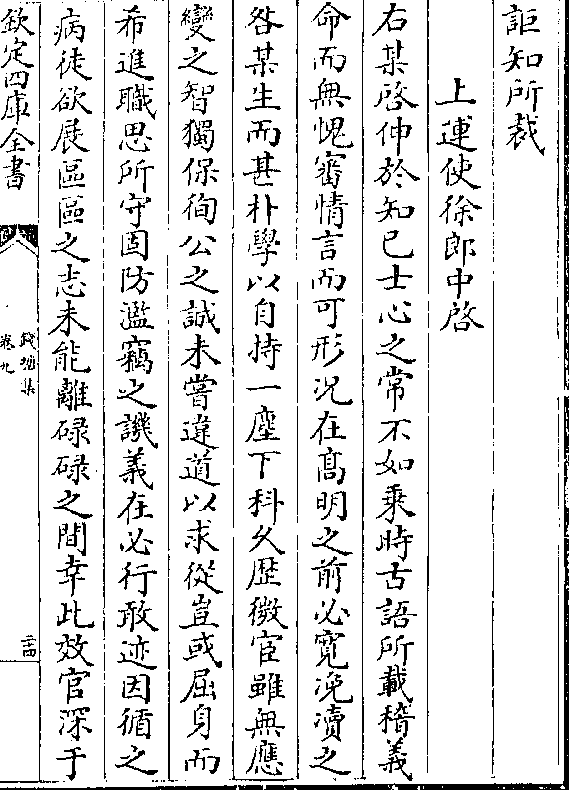 詎知所裁
上運使徐郎中啓
右某啓伸於知已士心之常不如乗時古語所載稽義
命而無愧審情言而可形况在髙明之前必寛浼瀆之
咎某生而甚朴學以自持一塵下科久歴微宦雖無應
變之智獨保徇公之誠未嘗違道以求從豈或屈身而
希進職思所守固防濫竊之譏義在必行敢迹因循之
病徒欲展區區之志未能離碌碌之間幸此效官深于
欽定四庫全書
錢塘集
卷九